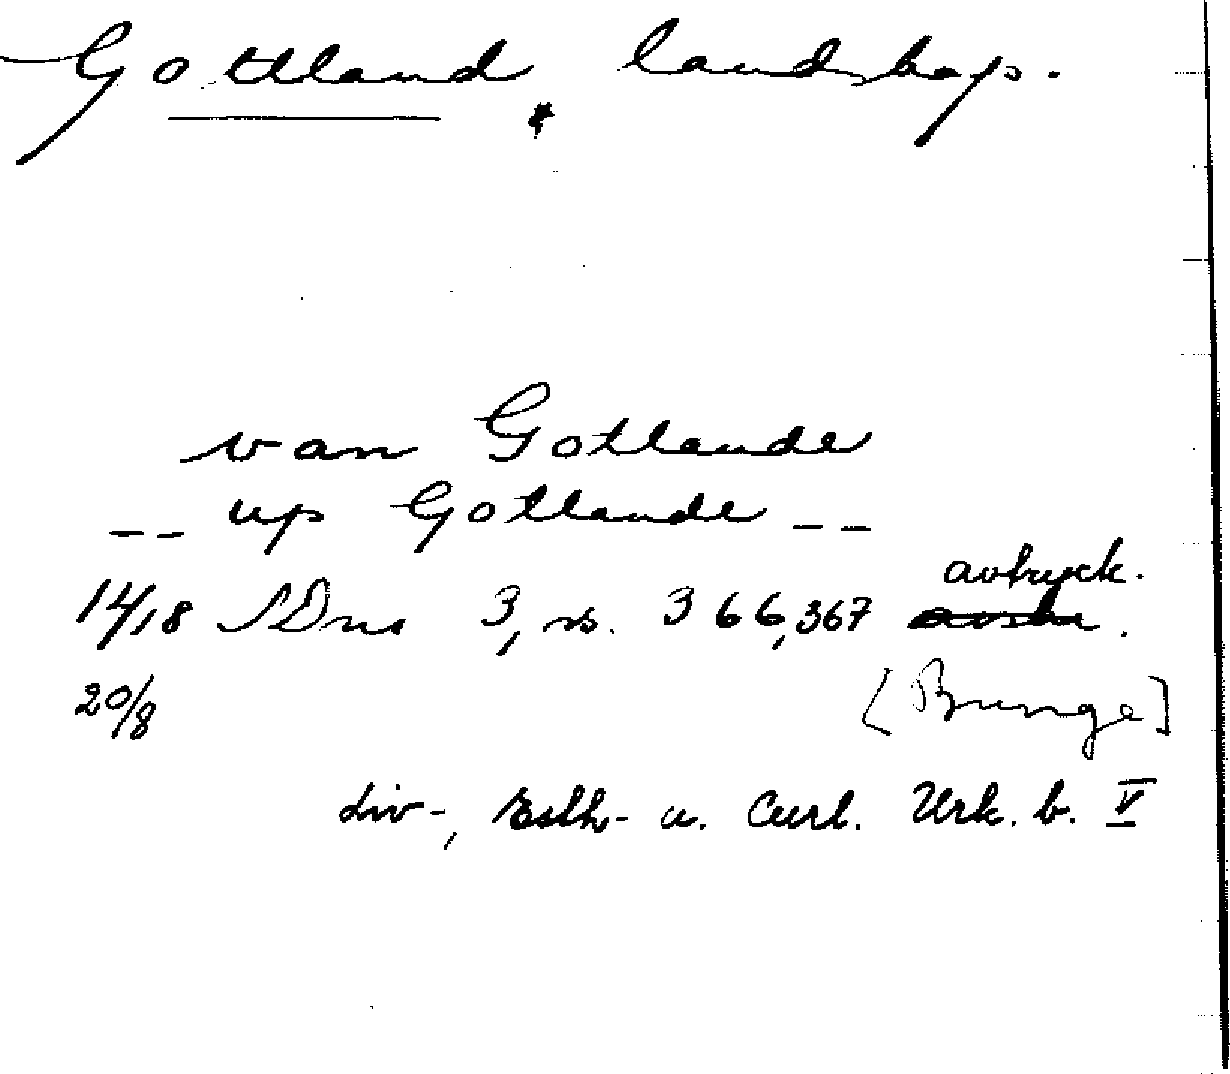 Gottland, landskap.
van Gotlande
-- up Gotlande --
1418 SDns 3, s. 366,367 avtryck.
20/8 [Bunge]
Liv-, Esth- u. Curl. Urk. b. V